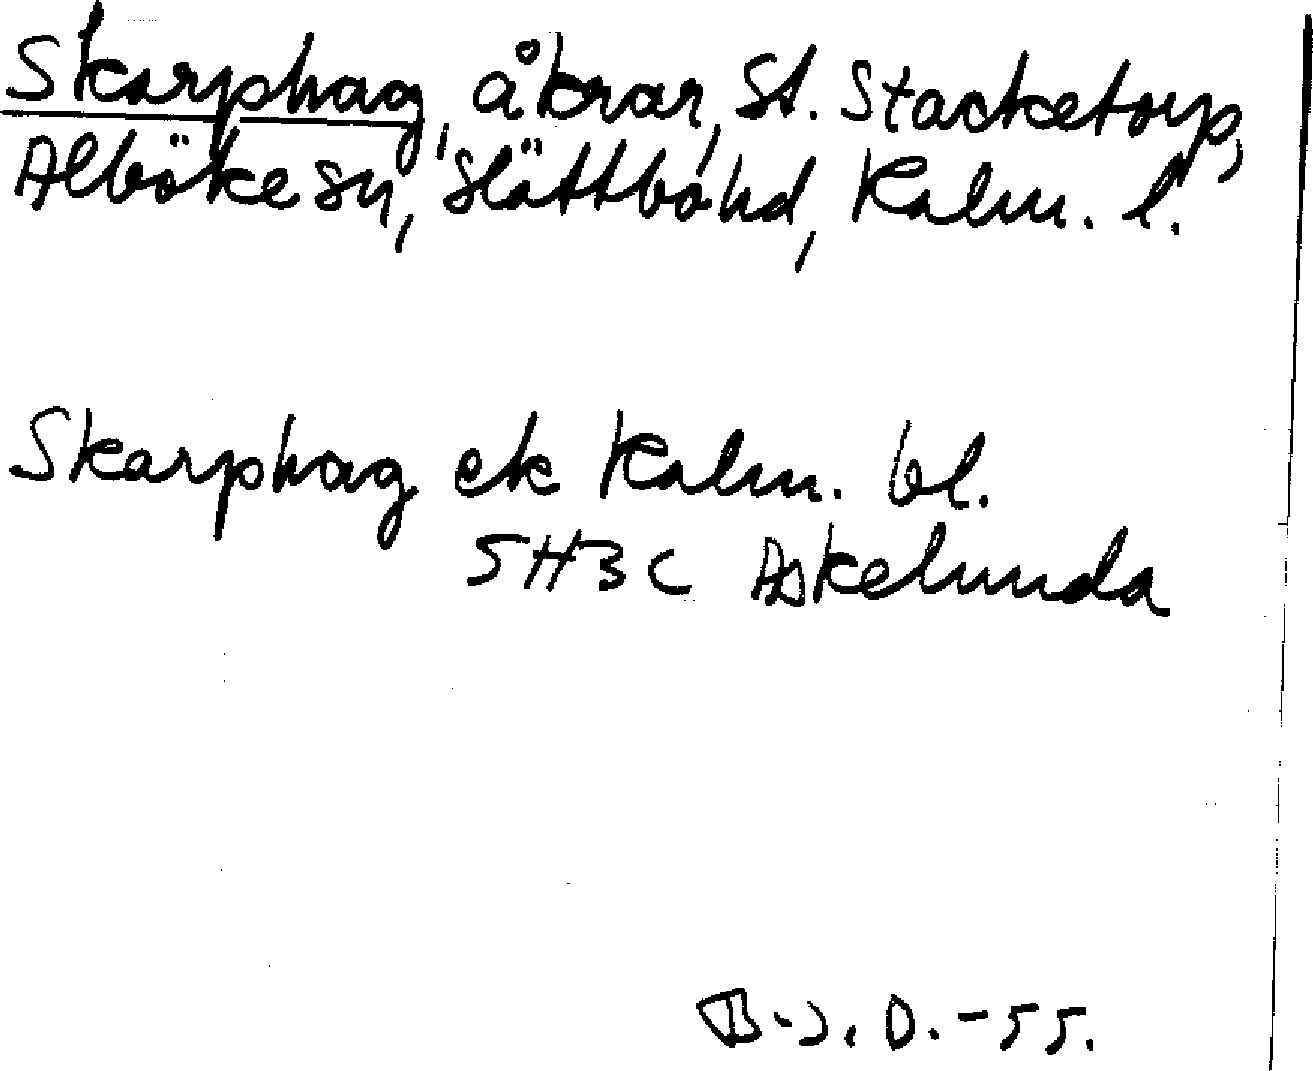 Skarphag, åkrar, St. Stacketorp,
Alböke sn, Slättbo hd, Kalm. l.
Skarphag ek Kalm. bl.
5H3c Askelunda
B.-J. D. -55.